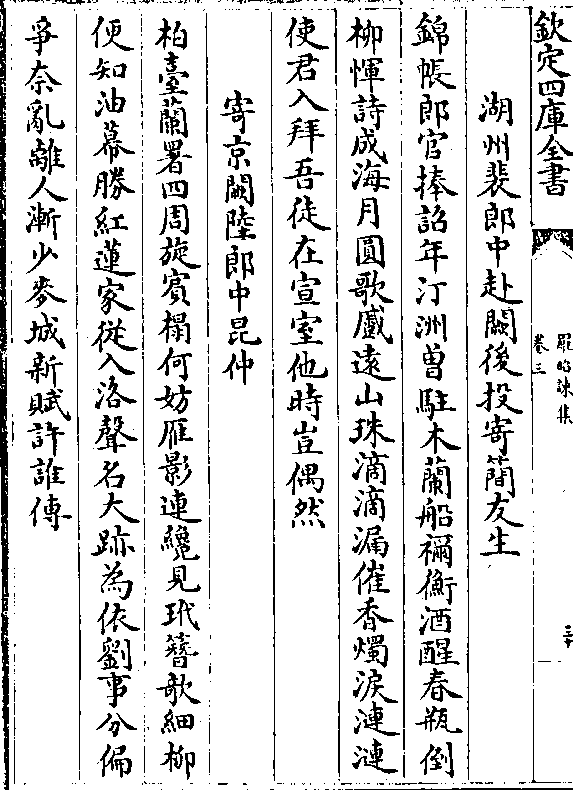 欽定四庫全書
羅昭諫集
卷三
三十
湖州裴郎中赴闕後投寄簡友生
錦帳郎官捧詔年汀洲曾駐木蘭船禰衡酒醒春瓶倒
柳惲詩成海月圓歌蹙遠山珠滴滴漏催香燭淚漣漣
使君入拜吾徒在宣室他時豈偶然
寄京闕陸郎中昆仲
柏臺蘭署四周旋賓榻何妨雁影連纔見玳簪欹細柳
便知油幕勝紅蓮家從入洛聲名大跡為依劉事分偏
爭奈亂離人漸少麥城新賦許誰傳